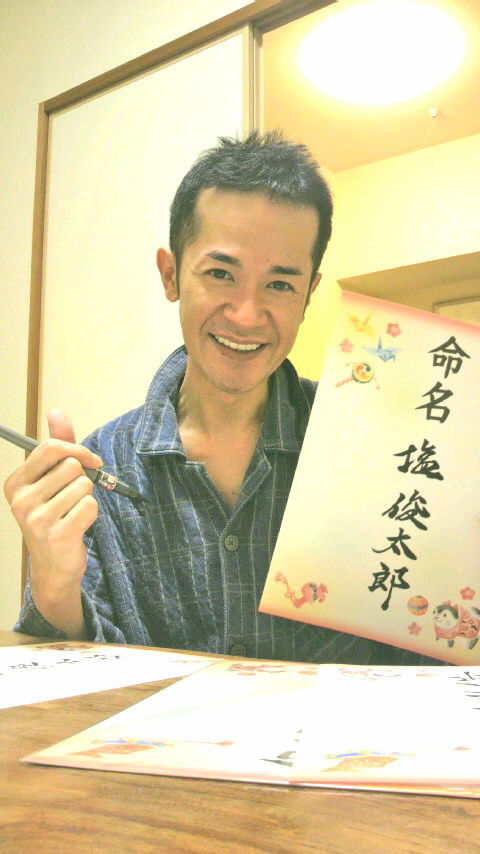 命名
塩 俊太郎